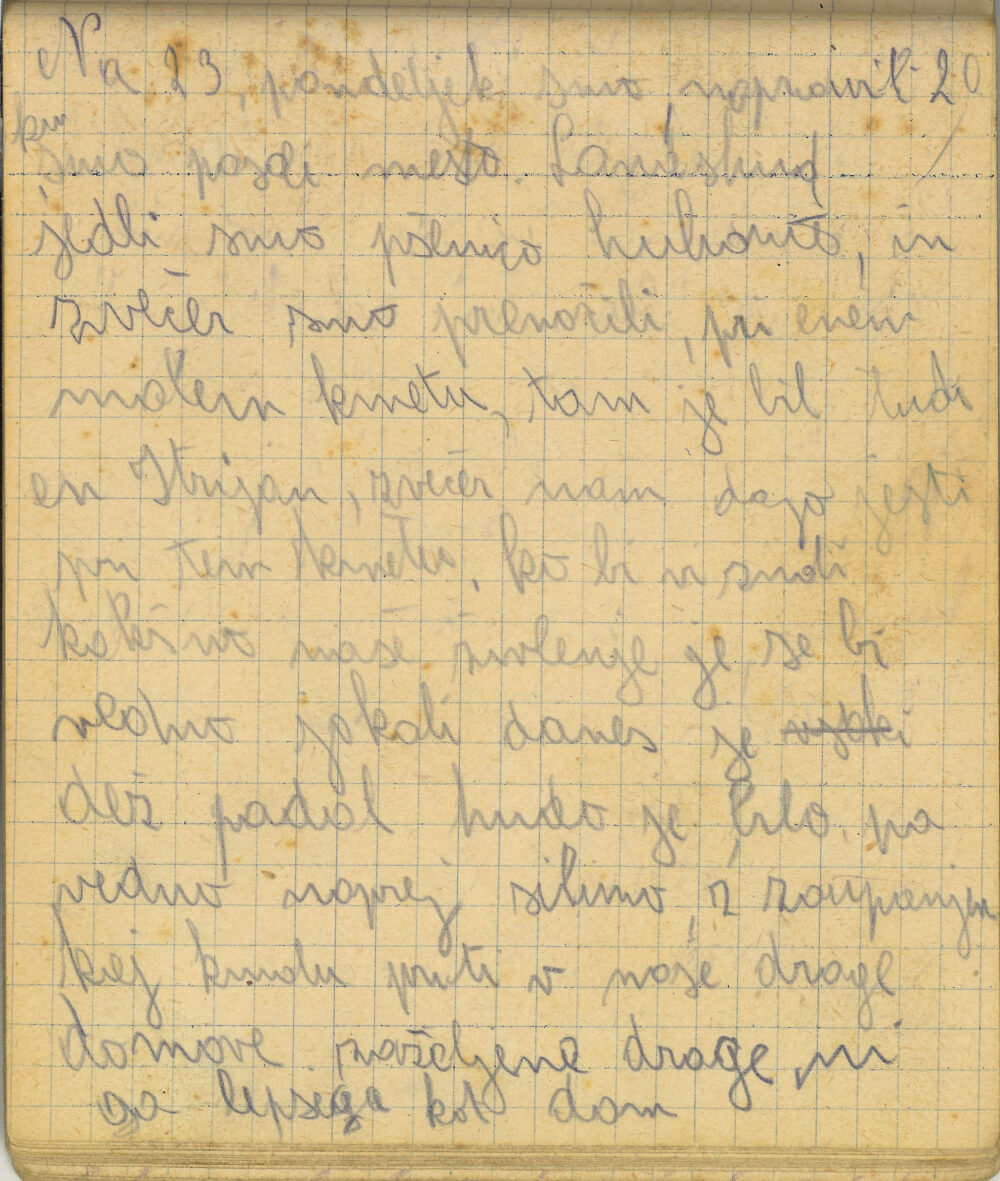 Na 23, pondeljek smo napravili 20
km
smo pasali mesto. Landshud
jedli smo pšenico kuhano, in
zvečer smo prenočili, pri enem
malem kmetu, tam je bil tudi
en Istrijan, zvečer nam dajo jesti
pri tem kmetu, ko bi vi sndi
kakšno naše živlenje je, se bi
vedno jokali danes je
dež padal hudo je bilo, pa
vedno naprej silimo, z zaupanjem
kej kmalu priti v naše drage
domove zaželjene drage, ni
ga lepsega kot dom